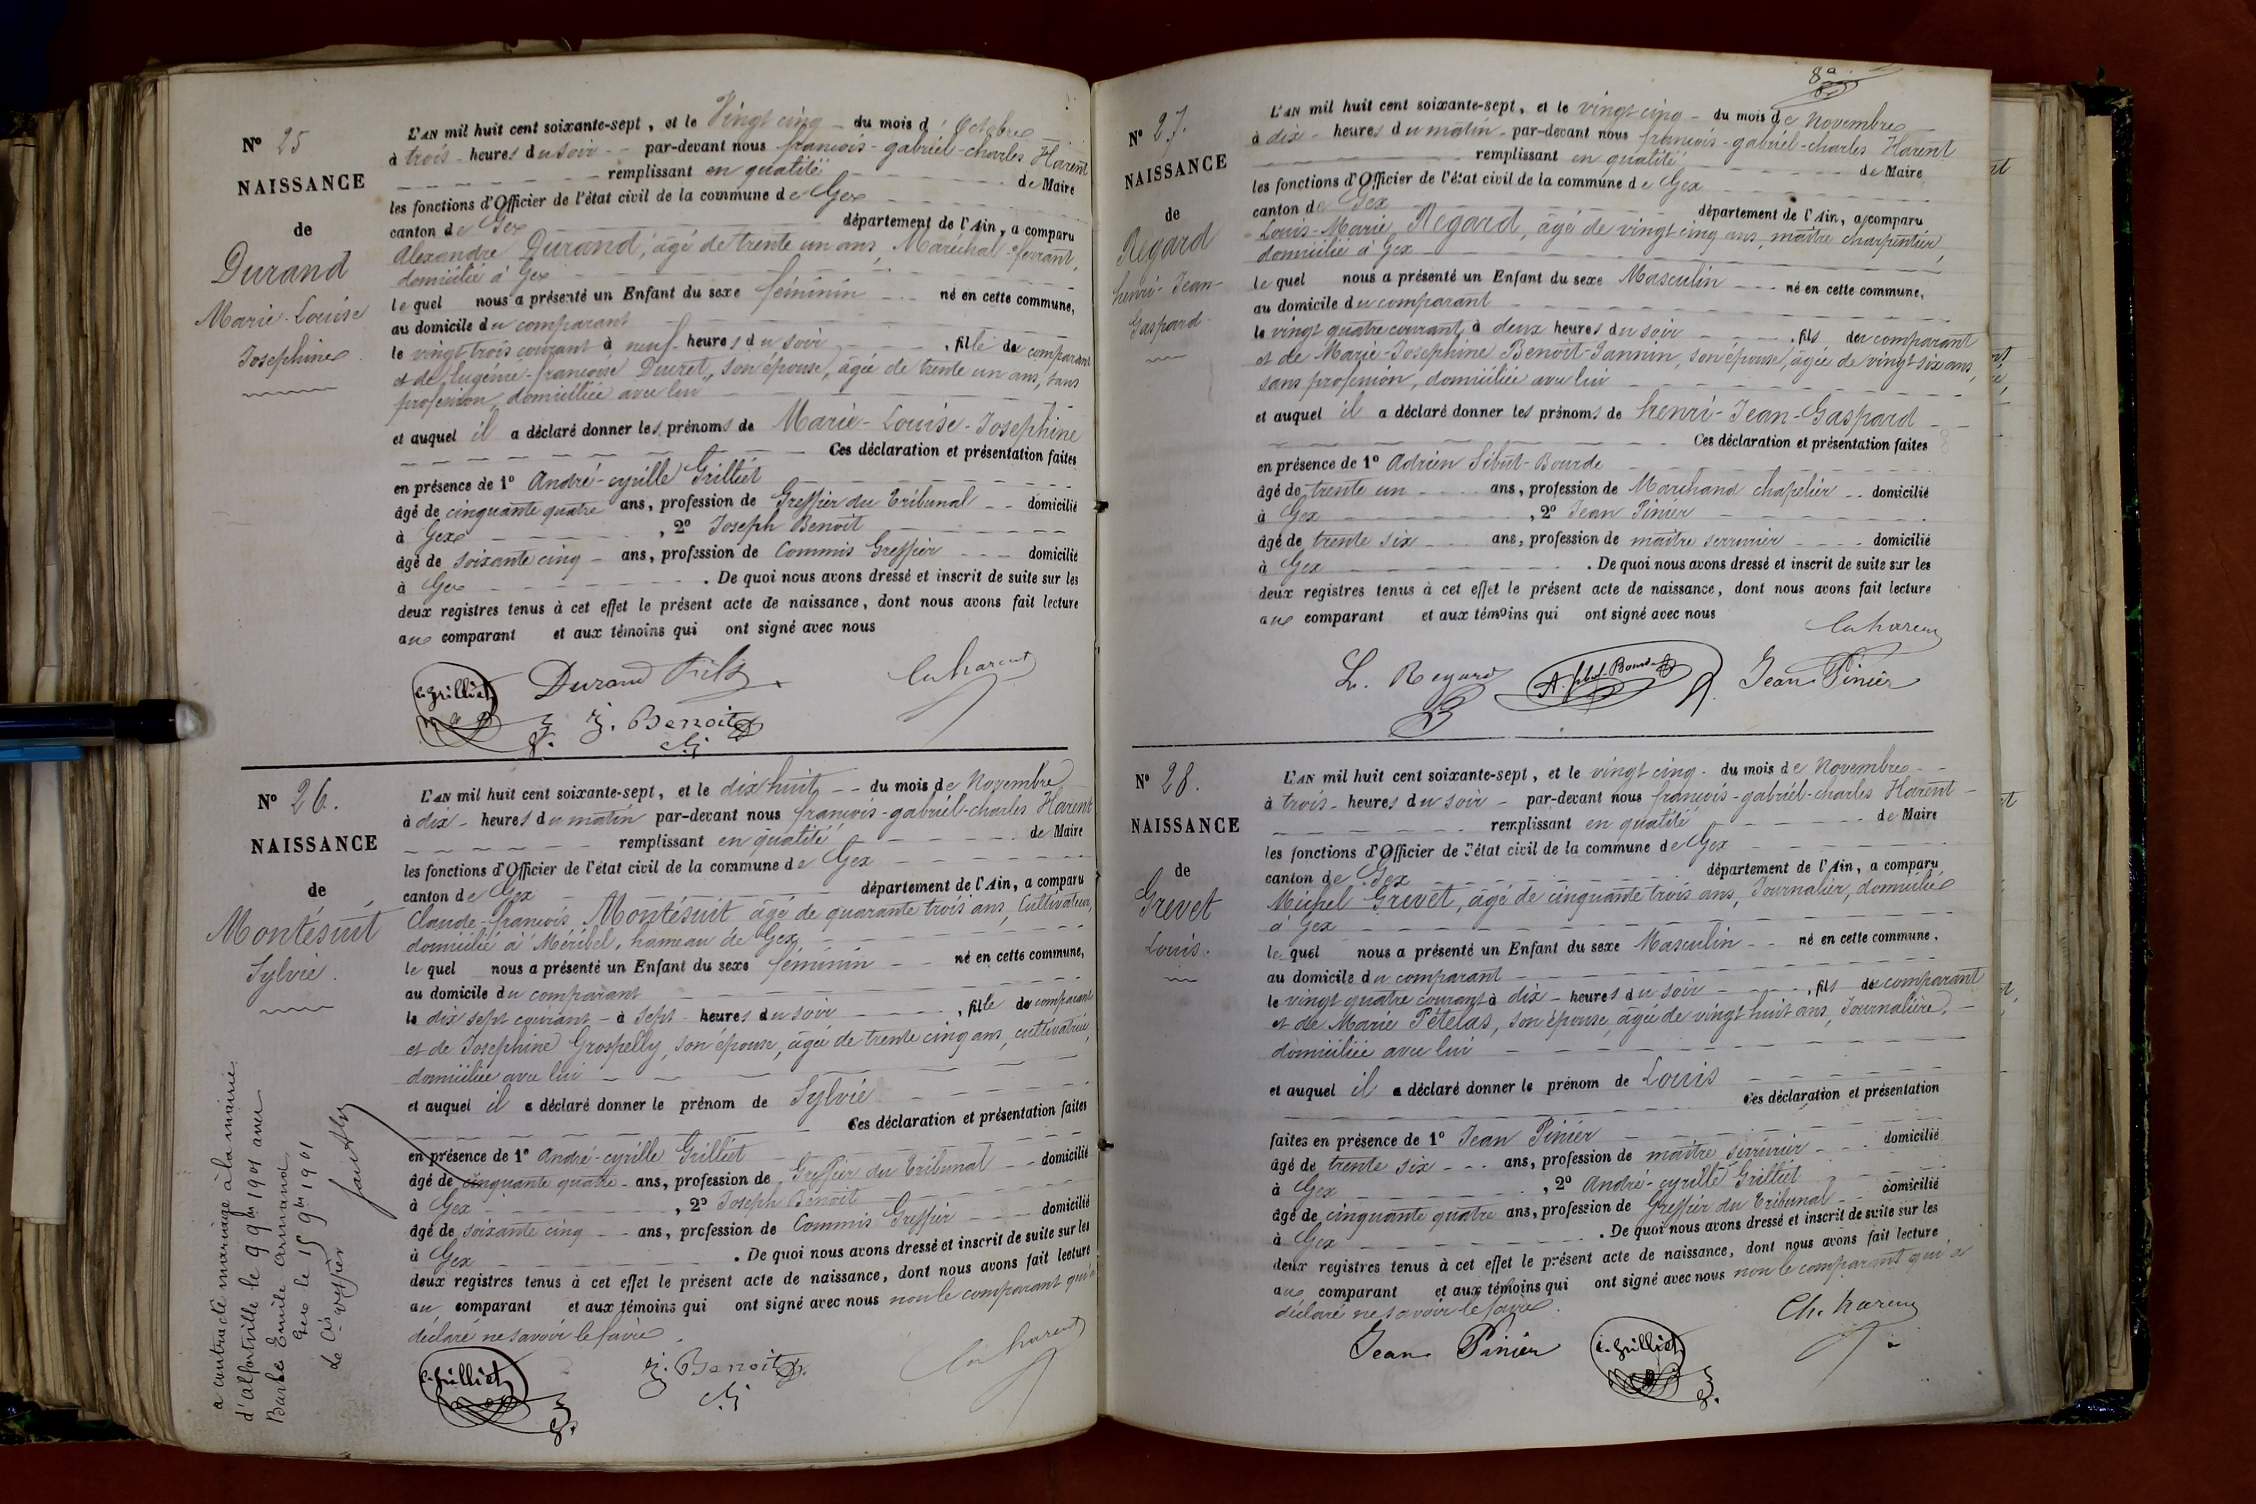 N° 25
NAISSANCE
de
Durand
Marie-Louise
Josephine
L'AN mil huit cent soixante-sept, et le Vingt cinq du mois d'Octobre
à trois heures du soir par-devant nous françois-gabriel-charles Harent
remplissant en qualité de Maire
les fonctions d'Officier de l'état civil de la commune de Gex
canton de Gex département de l'Ain, a comparu
Alexandre Durand, âgé de trente un ans, Maréchal-ferrant,
domicilié à Gex
lequel nous a présenté un Enfant du sexe féminin né en cette commune,
au domicile du comparant
le vingt trois courant à neuf heures du soir, fille du comparant
et de Eugénie-françoise Duret, son épouse, âgée de trente un ans, sans
profession, domiciliée avec lui
et auquel il a déclaré donner les prénoms de Marie-Louise-Josephine
Ces déclaration et présentation faites
en présence de 1° André-cyrille Grilliet
âgé de cinquante quatre ans, profession de Greffier du Tribunal domicilié
à Gex, 2° Joseph Benoit
âgé de soixante cinq ans, profession de Commis Greffier domicilié
à Gex. De quoi nous avons dressé et inscrit de suite sur les
deux registres tenus à cet effet le présent acte de naissance, dont nous avons fait lecture
aux comparant et aux témoins qui ont signé avec nous
C. Grilliet Durand fils Ch harent
J. Benoit
N° 26.
NAISSANCE
de
Montésuit
Sylvie.
L'AN mil huit cent soixante-sept, et le dix huit du mois de Novembre
à dix heures du matin par-devant nous françois-gabriel-charles Harent
remplissant en qualité de Maire
les fonctions d'Officier de l'état civil de la commune de Gex
canton de Gex département de l'Ain, a comparu
Claude-françois Montésuit âgé de quarante trois ans, Cultivateur,
domicilié à Méribel, hameau de Gex
lequel nous a présenté un Enfant du sexe féminin né en cette commune,
au domicile du comparant
le dix sept courant à sept heures du soir, fille du comparant
et de Josephine Grospelly, son épouse, âgée de trente cinq ans, cultivatrice,
domiciliée avec lui
et auquel il a déclaré donner le prénom de Sylvie
Ces déclaration et présentation faites
en présence de 1° André-cyrille Grilliet
âgé de cinquante quatre ans, profession de Greffier du Tribunal domicilié
à Gex, 2° Joseph Benoit
âgé de soixante cinq ans, profession de Commis Greffier domicilié
à Gex. De quoi nous avons dressé et inscrit de suite sur les
deux registres tenus à cet effet le présent acte de naissance, dont nous avons fait lecture
au comparant et aux témoins qui ont signé avec nous non le comparant qui a
déclaré ne savoir le faire.
C. Grilliet J. Benoit Ch harent
a contracté mariage à la mairie
d'alfortville le 9 9bre 1901 avec
Barbe Emile Armand
Gex le 15 9bre 1901
Le Greffier
N° 27.
NAISSANCE
de
Regard
henri-Jean-
Gaspard.
L'AN mil huit cent soixante-sept, et le vingt cinq du mois de Novembre
à dix heures du matin par-devant nous françois-gabriel-charles Harent
remplissant en qualité de Maire
les fonctions d'Officier de l'état civil de la commune de Gex
canton de Gex département de l'Ain, a comparu
Louis-Marie Regard, âgé de vingt cinq ans, maître charpentier,
domicilié à Gex
lequel nous a présenté un Enfant du sexe Masculin né en cette commune,
au domicile du comparant
le vingt quatre courant à deux heures du soir, fils du comparant
et de Marie-Josephine Benoit-Jannin, son épouse, âgée de vingt six ans,
sans profession, domiciliée avec lui
et auquel il a déclaré donner les prénoms de henri-Jean-Gaspard
Ces déclaration et présentation faites
en présence de 1° Adrien Sibut-Bourde
âgé de trente un ans, profession de Marchand chapelier domicilié
à Gex, 2° Jean Pinier
âgé de trente six ans, profession de maître serrurier domicilié
à Gex. De quoi nous avons dressé et inscrit de suite sur les
deux registres tenus à cet effet le présent acte de naissance, dont nous avons fait lecture
aux comparant et aux témoins qui ont signé avec nous
Ch harent
L. Regard A. Sibut Bourde Jean Pinier
N° 28.
NAISSANCE
de
Grevet
Louis.
L'AN mil huit cent soixante-sept, et le vingt cinq du mois de Novembre
à trois heures du soir par-devant nous françois-gabriel-charles Harent
remplissant en qualité de Maire
les fonctions d'Officier de l'état civil de la commune de Gex
canton de Gex département de l'Ain, a comparu
Michel Grevet, âgé de cinquante trois ans, Journalier, domicilié
à Gex
lequel nous a présenté un Enfant du sexe Masculin né en cette commune,
au domicile du comparant
le vingt quatre courant à dix heures du soir, fils du comparant
et de Marie Pételas, son épouse, âgée de vingt huit ans, Journalière,
domiciliée avec lui
et auquel il a déclaré donner le prénom de Louis
Ces déclaration et présentation
faites en présence de 1° Jean Pinier
âgé de trente six ans, profession de maître serrurier domicilié
à Gex, 2° André-cyrille Grilliet
âgé de cinquante quatre ans, profession de Greffier du Tribunal domicilié
à Gex. De quoi nous avons dressé et inscrit de suite sur les
deux registres tenus à cet effet le présent acte de naissance, dont nous avons fait lecture
aux comparant et aux témoins qui ont signé avec nous non le comparant qui a
déclaré ne savoir le faire.
Jean Pinier C. Grilliet Ch. harent